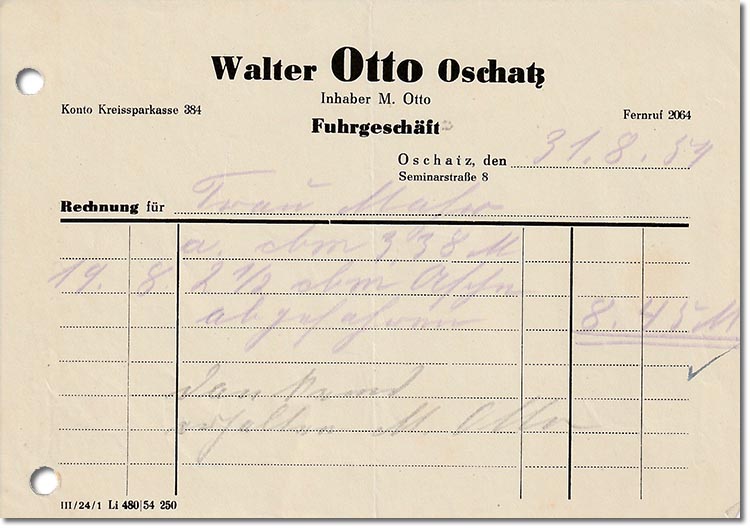 Walter Otto Oschatz
Inhaber M. Otto
Konto Kreissparkasse 384
Fernruf 2064
Fuhrgeschäft
Oschatz, den 31. 8. 54
Seminarstraße 8
Rechnung für Frau
a. cbm 3,38 M
19. 8. 2 ½ cbm Asche
abgefahren 8.45 M
Dankend
erhalten M. Otto
III/24/1 Li 480|54 250